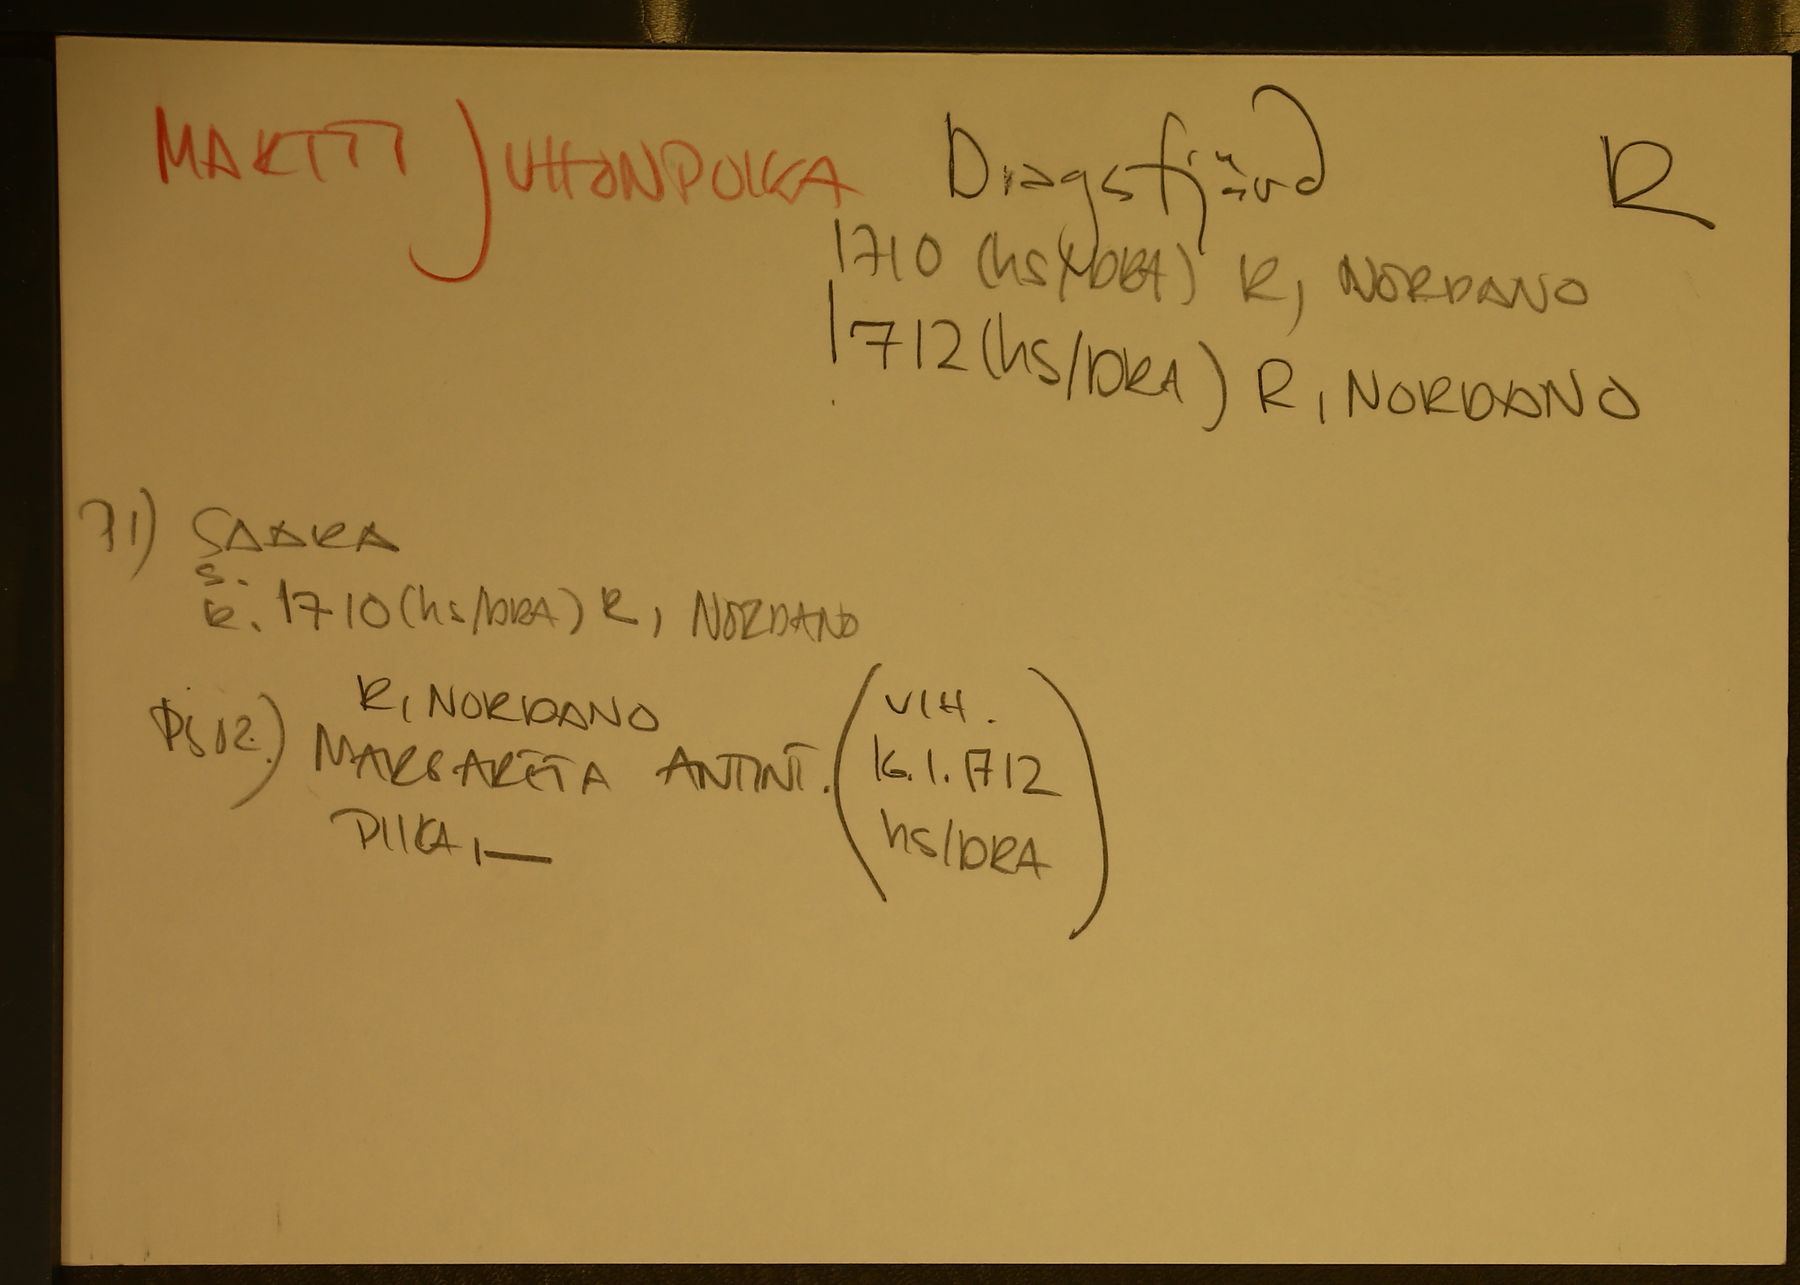 MARTTI JUHONPOIKA Dragsfjärd R
1710 (hs/DRA) R, NORDANO
1712 (hs/DRA) R, NORDANO
71) SAARA
S.
K. 1710 (hs/DRA) R, NORDANO
R, NORDANO
MARGAREETA ANTINT. (VIH.
16.1.1712
PIIKA, —
hs/DRA)